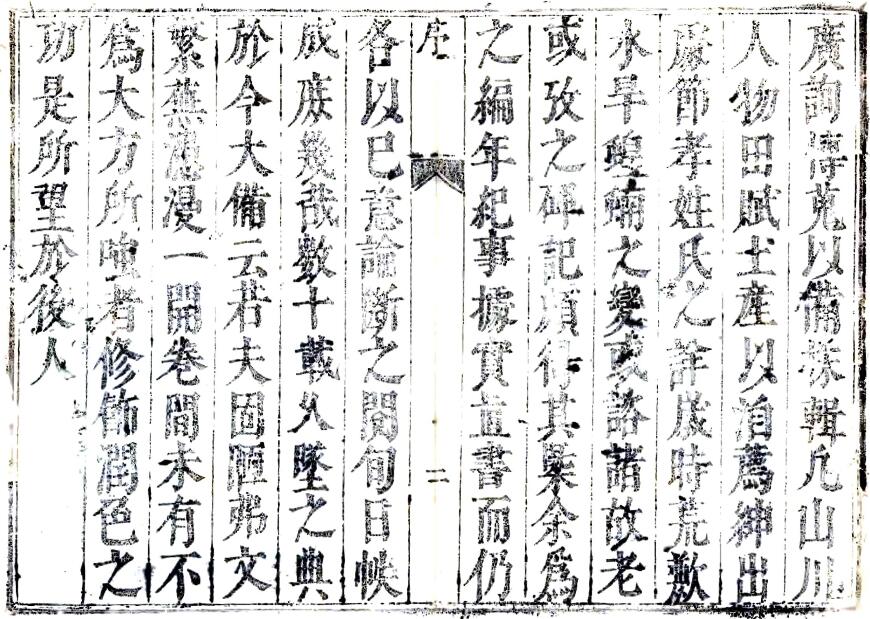 廣詢博蒐以備採輯凡山川
人物田賦土產以洎薦紳出
處節孝姓氏之詳歲時荒歉
水旱蝗蝻之變或諮諸故老
或攷之碑記頗得其槩余爲
之編年紀事據實直書而仍
序 二
各以已意論斷之閱旬日帙
成庶幾哉數十載久墜之典
於今大備云若夫固陋弗文
繁蕪漶漫一開卷間未有不
爲大方所嗤者修飾潤色之
功是所望於後人